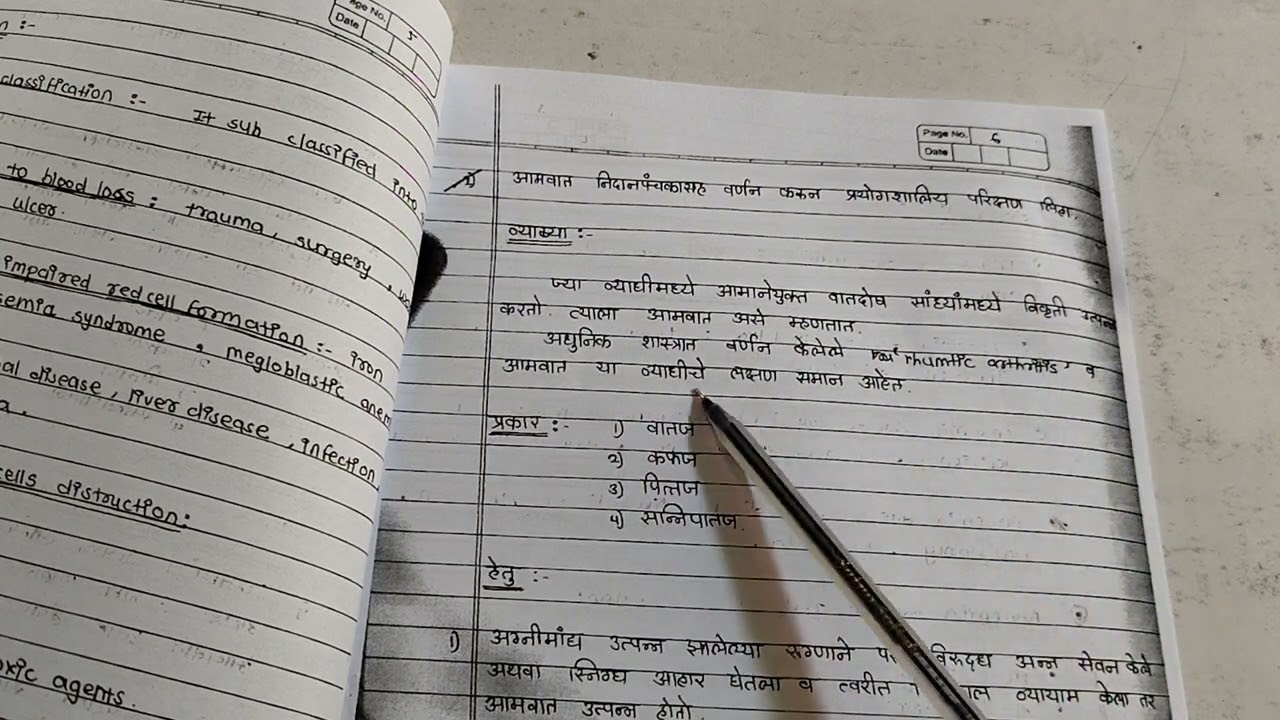 Page No. 5
Date
n :-
classification :- It sub classified into
to blood loss : trauma, surgery,
ulcer.
impaired red cell formation :- iron
semia syndrome, megloblastic anem
al disease, liver disease, infection
a.
cells distruction:
oxic agents.
Page No. 6
Date
आमवात निदानपंचकासह वर्णन करून प्रयोगशालिय परिक्षण लिहा.
व्याख्या :-
ज्या व्याधीमध्ये आमानेयुक्त वातदोष सांध्यांमध्ये विकृती उत्पन्न
करतो. त्याला आमवात असे म्हणतात.
अधुनिक शास्त्रात वर्णन केलेले rhumtic व
आमवात या व्याधीचे लक्षण समान आहेत.
प्रकार :- 1) वातज
2) कफज
3) पित्तज
4) सन्निपातज.
हेतु :-
1) अग्नीमांद्य उत्पन्न झालेल्या रुग्णाने विरुद्ध अन्न सेवन केले
अथवा स्निग्ध आहार घेतला व त्वरीत व्यायाम केला तर
आमवात उत्पन्न होतो.